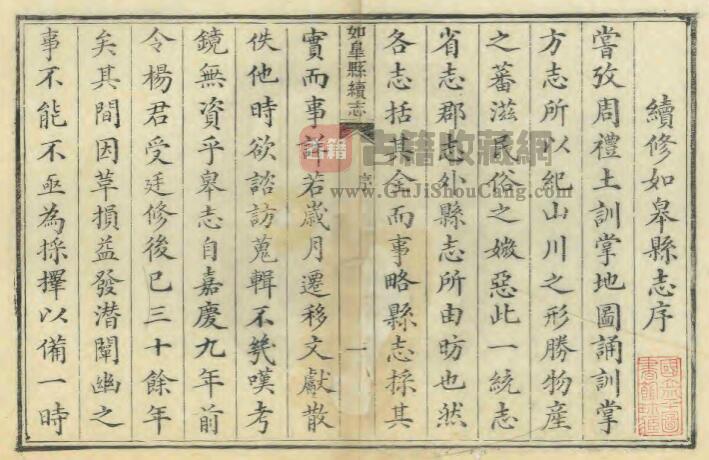 續修如皋縣志序
嘗攷周禮土訓掌地圖誦訓掌
方志所以紀山川之形勝物產
之蕃滋民俗之媺惡此一統志
省志郡志外縣志所由昉也然
各志括其全而事略縣志採其
如皋縣續志
序
一
實而事詳若歲月遷移文獻散
佚他時欲諮訪蒐輯不幾嘆考
鏡無資乎皋志自嘉慶九年前
令楊君受廷修後已三十餘年
矣其間因革損益發潛闡幽之
事不能不亟為採擇以備一時
古籍
古籍收藏網
www.GuJiShouCang.com